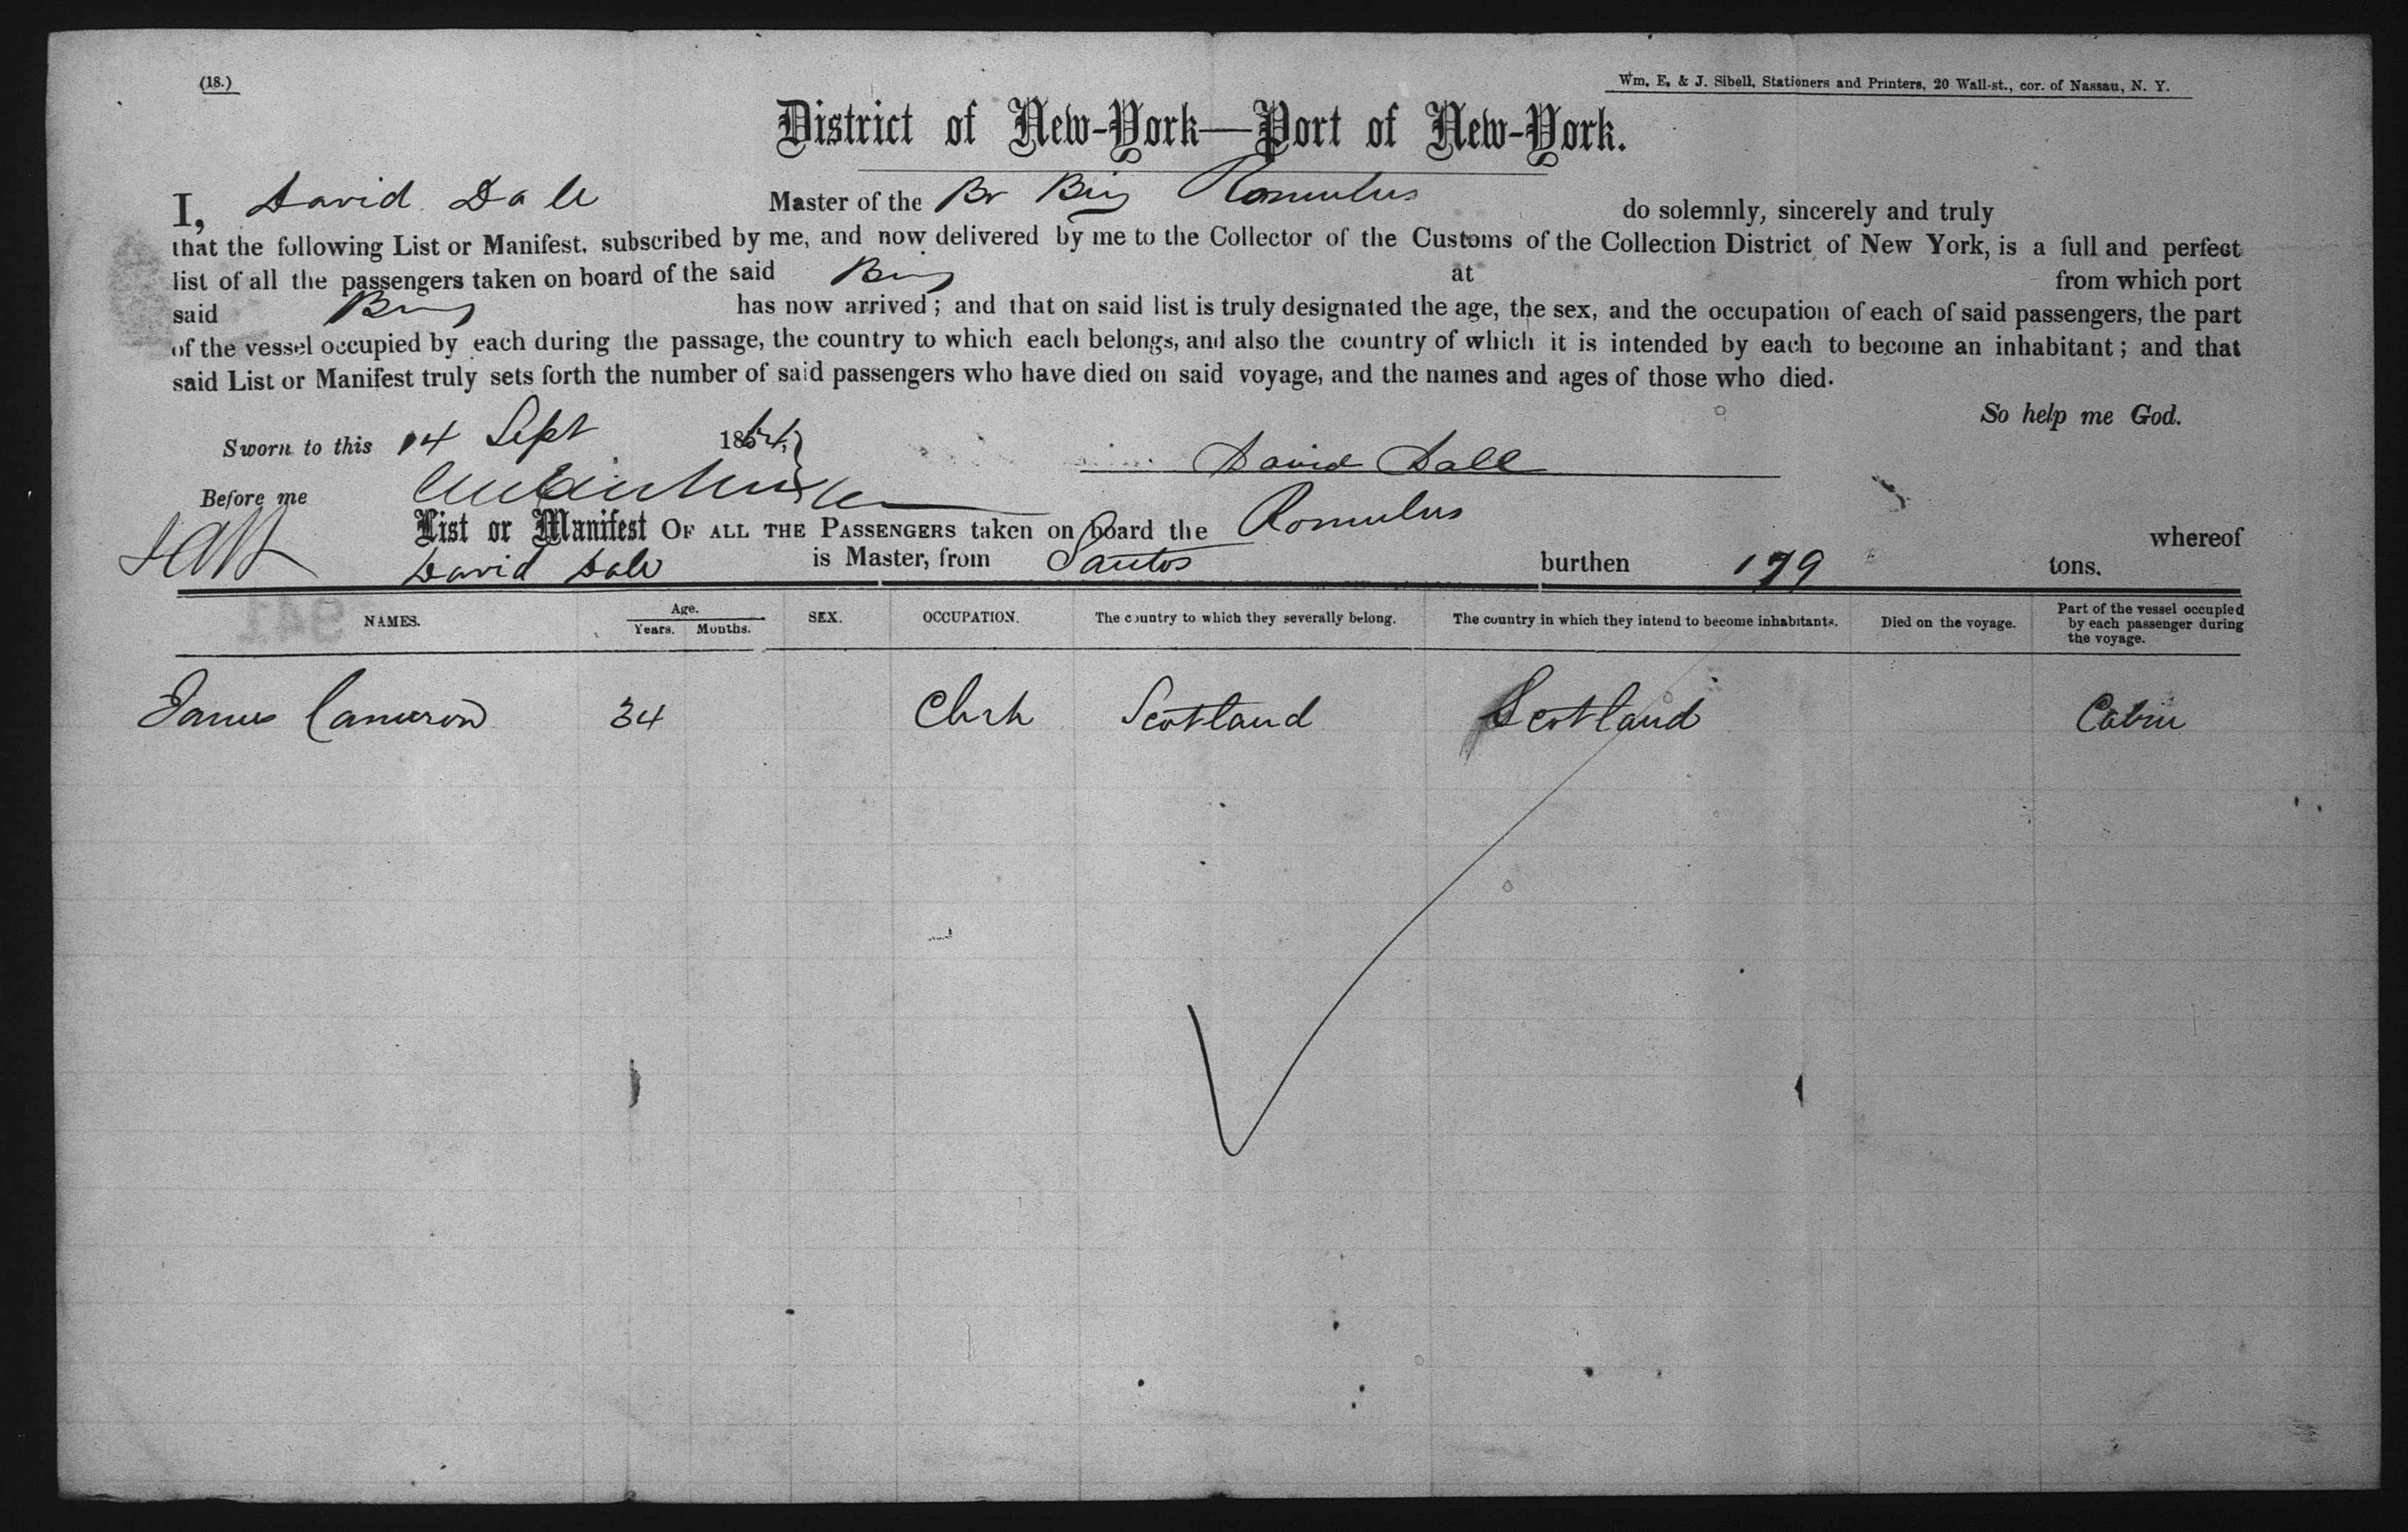 (18.)
Wm. E. & J. Sibell, Stationers and Printers, 20 Wall-st., cor. of Nassau, N. Y.
District of New-York—Port of New-York.
I, David Dale Master of the Br Brig Romulus do solemnly, sincerely and truly
that the following List or Manifest, subscribed by me, and now delivered by me to the Collector of the Customs of the Collection District of New York, is a full and perfect
list of all the passengers taken on board of the said Brig at from which port
said Brig has now arrived; and that on said list is truly designated the age, the sex, and the occupation of each of said passengers, the part
of the vessel occupied by each during the passage, the country to which each belongs, and also the country of which it is intended by each to become an inhabitant; and that
said List or Manifest truly sets forth the number of said passengers who have died on said voyage, and the names and ages of those who died.
So help me God.
Sworn to this 14 Sept 1864
David Dale
Before me
List or Manifest OF ALL THE PASSENGERS taken on board the Romulus whereof
David Dale is Master, from Santos burthen 179 tons.
NAMES. Age. Years. Months. SEX. OCCUPATION. The country to which they severally belong. The country in which they intend to become inhabitants. Died on the voyage. Part of the vessel occupied by each passenger during the voyage.
James Cameron 34 Clerk Scotland Scotland Cabin